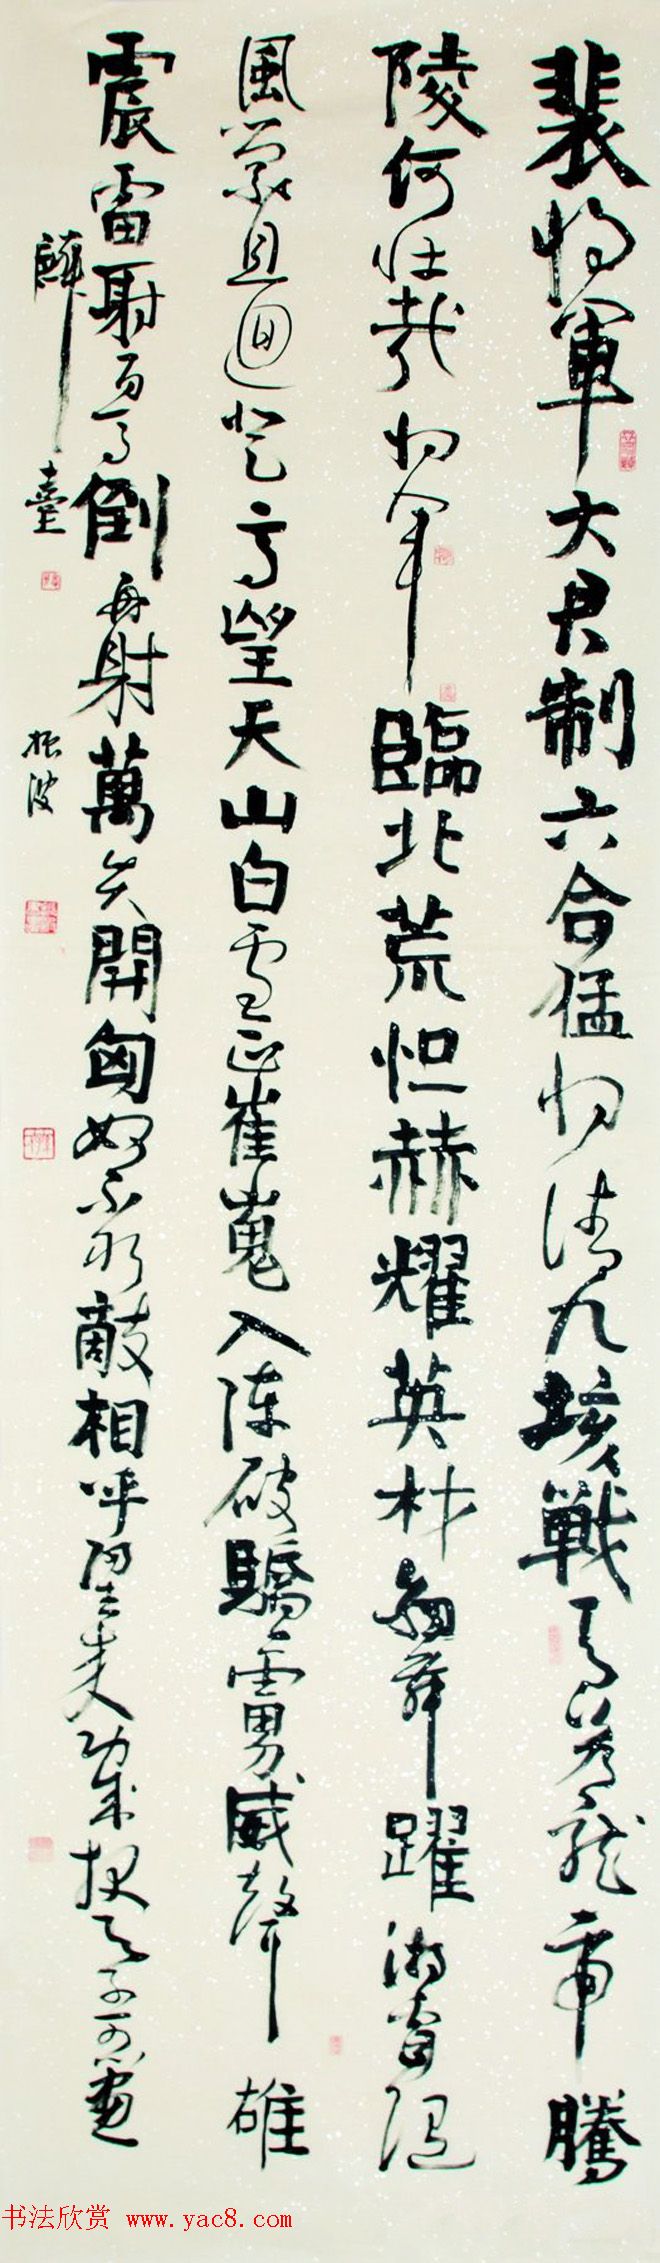 裴將軍大君制六合猛將清九垓戰馬若龍虎騰
陵何壯哉將軍臨北荒烜赫耀英材劍舞躍游電隨
風縈且迴登高望天山白雪正崔嵬入陣破驕虜威聲雄
震雷射百馬倒再射萬夫開匈奴不敢敵相呼歸去來功成報天子可以畫
麟臺 振波
书法欣赏 www.yac8.com